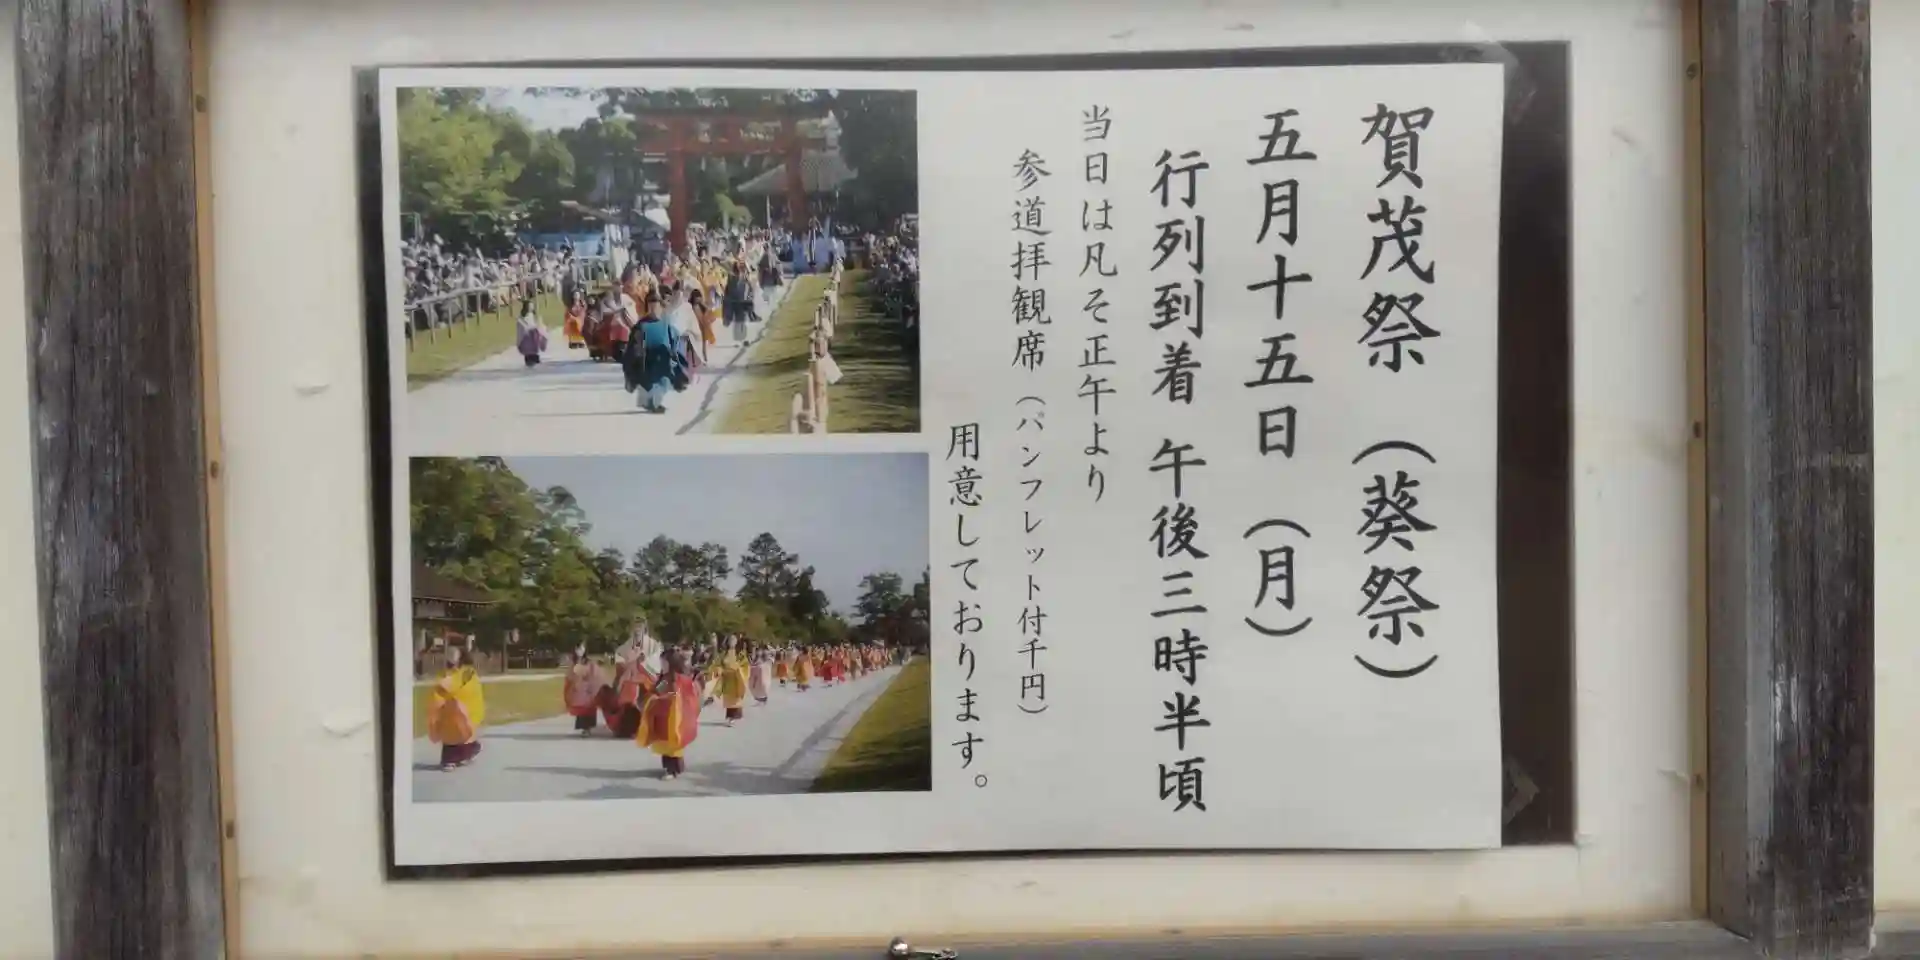 賀茂祭（葵祭）
五月十五日（月）
行列到着 午後三時半頃
当日は凡そ正午より
参道拝観席（パンフレット付千円）
用意しております。